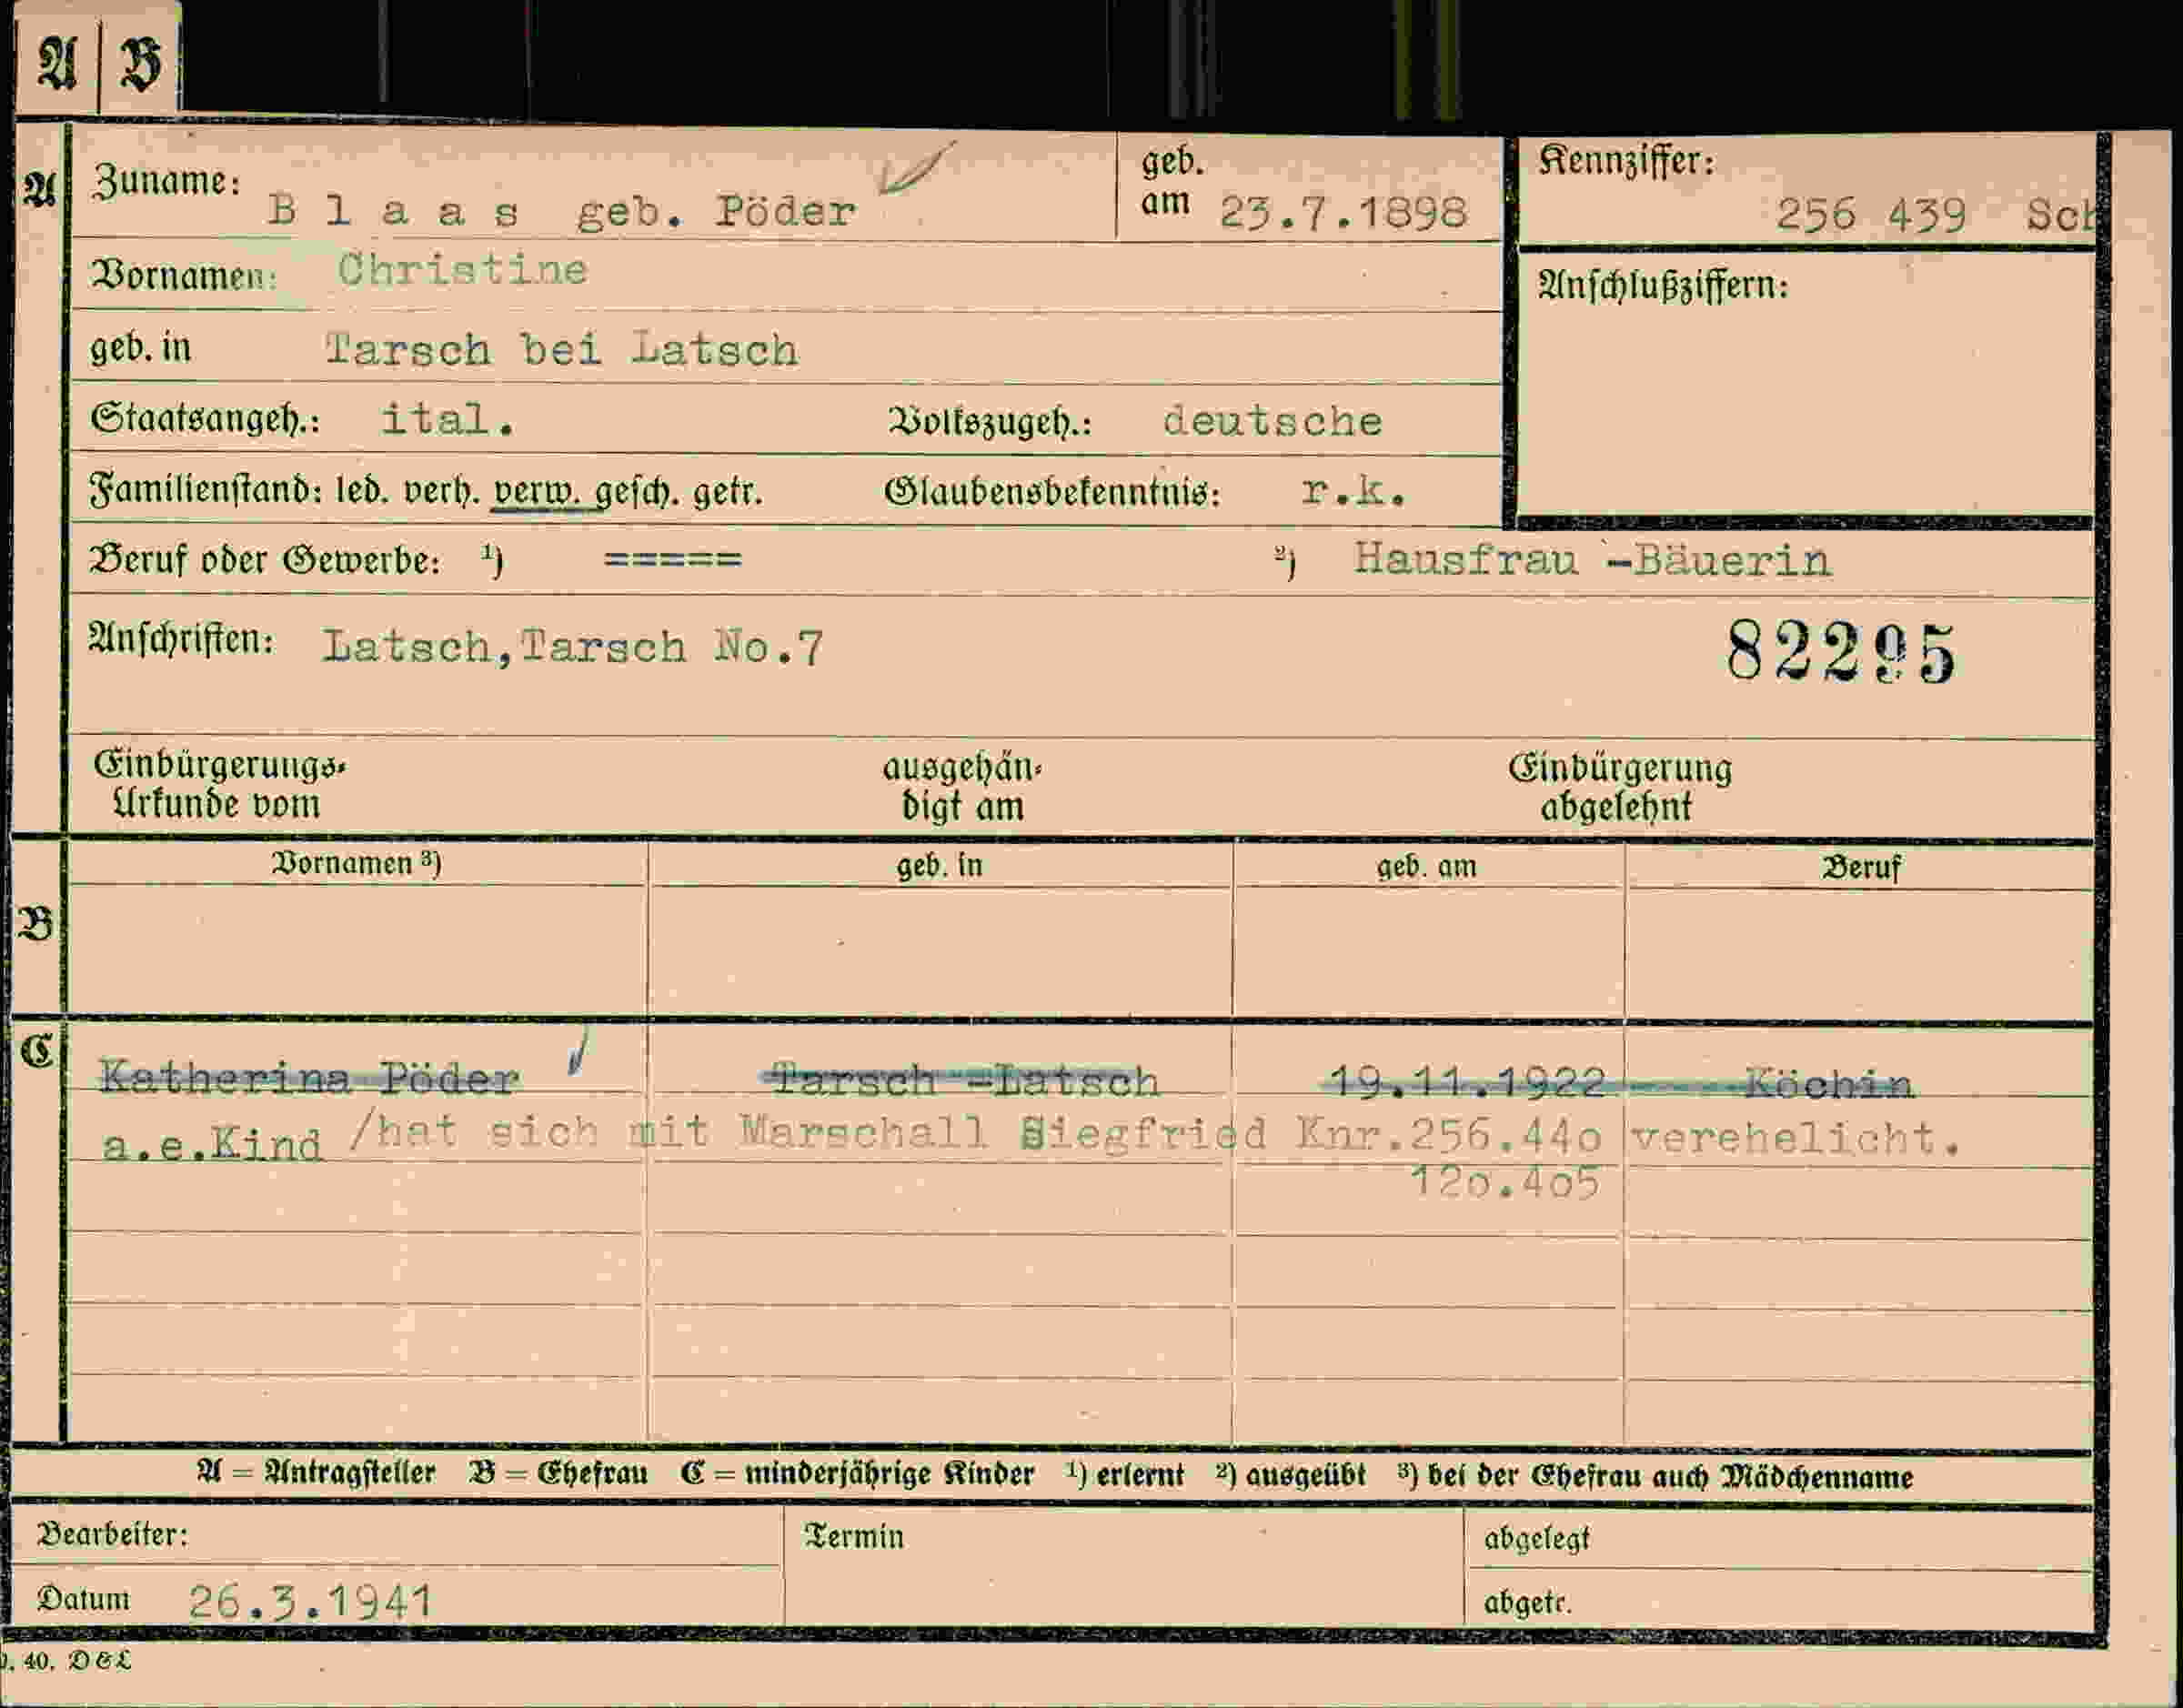 A B
A Zuname: Blaas geb. Pöder geb. am 23.7.1898 Kennziffer: 256 439 Sch
Vornamen: Christine Anschlußziffern:
geb. in Tarsch bei Latsch
Staatsangeh.: ital. Volkszugeh.: deutsche
Familienstand: led. verh. verw. gesch. getr. Glaubensbekenntnis: r.k.
Beruf oder Gewerbe: 1) ===== 2) Hausfrau -Bäuerin
Anschriften: Latsch,Tarsch No.7 82295
Einbürgerungs- ausgehän- Einbürgerung
Urkunde vom digt am abgelehnt
Vornamen 3) geb. in geb. am Beruf
B
C Katherina Pöder Tarsch -Latsch 19.11.1922 Köchin
a.e.Kind /hat sich mit Marschall Siegfried Knr.256.44o verehelicht.
12o.4o5
A = Antragsteller B = Ehefrau C = minderjährige Kinder 1) erlernt 2) ausgeübt 3) bei der Ehefrau auch Mädchenname
Bearbeiter: Termin abgelegt
Datum 26.3.1941 abgetr.
40. D&L